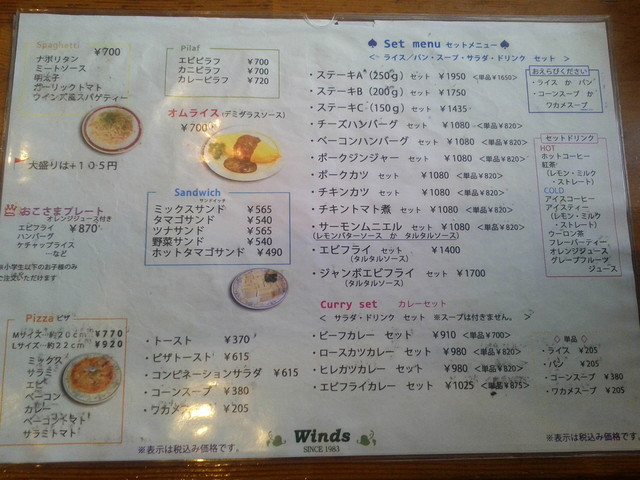 Spaghetti
¥700
ナポリタン
ミートソース
明太子
ガーリックトマト
ウインズ風スパゲティー
大盛りは+105円
おこさまプレート
オレンジジュース付き
¥870
エビフライ
ハンバーグ
ケチャップライス
…など
※小学生以下のお子様のみ
ご注文いただけます
Pizza ピザ
Mサイズ…約20cm ¥770
Lサイズ…約22cm ¥920
ミックス
サラミ
エビ
ベーコン
カレー
ベーコントマト
サラミトマト
Pilaf
エビピラフ ¥700
カニピラフ ¥700
カレーピラフ ¥720
オムライス (デミグラスソース)
¥700
Sandwich
サンドイッチ
ミックスサンド ¥565
タマゴサンド ¥540
ツナサンド ¥565
野菜サンド ¥540
ホットタマゴサンド ¥490
・トースト ¥370
・ピザトースト ¥615
・コンビネーションサラダ ¥615
・コーンスープ ¥380
・ワカメスープ ¥205
※表示は税込み価格です。
Winds
SINCE 1983
♠ Set menu セットメニュー ♠
< ライス/パン・スープ・サラダ・ドリンク セット >
・ステーキA (250g) セット ¥1950 <単品¥1650>
・ステーキB (200g) セット ¥1750
・ステーキC (150g) セット ¥1435
・チーズハンバーグ セット ¥1080 <単品¥820>
・ベーコンハンバーグ セット ¥1080 <単品¥820>
・ポークジンジャー セット ¥1080 <単品¥820>
・ポークカツ セット ¥1080 <単品¥820>
・チキンカツ セット ¥1080 <単品¥820>
・チキントマト煮 セット ¥1080 <単品¥820>
・サーモンムニエル セット ¥1080 <単品¥820>
(レモンバターソース か タルタルソース)
・エビフライ セット ¥1400
(タルタルソース)
・ジャンボエビフライ セット ¥1700
(タルタルソース)
Curry set カレーセット
< サラダ・ドリンク セット ※スープは付きません。 >
・ビーフカレー セット ¥910 <単品¥700>
・ロースカツカレー セット ¥980 <単品¥820>
・ヒレカツカレー セット ¥980 <単品¥820>
・エビフライカレー セット ¥1025 <単品¥875>
おえらびください
・ライス か パン
・コーンスープ か
ワカメスープ
セットドリンク
HOT
ホットコーヒー
紅茶
(レモン・ミルク
・ストレート)
COLD
アイスコーヒー
アイスティー
(レモン・ミルク
・ストレート)
ウーロン茶
フレーバーティー
オレンジジュース
グレープフルーツ
ジュース
◇ 単品 ◇
・ライス ¥205
・パン ¥205
・コーンスープ ¥380
・ワカメスープ ¥205
※表示は税込み価格です。